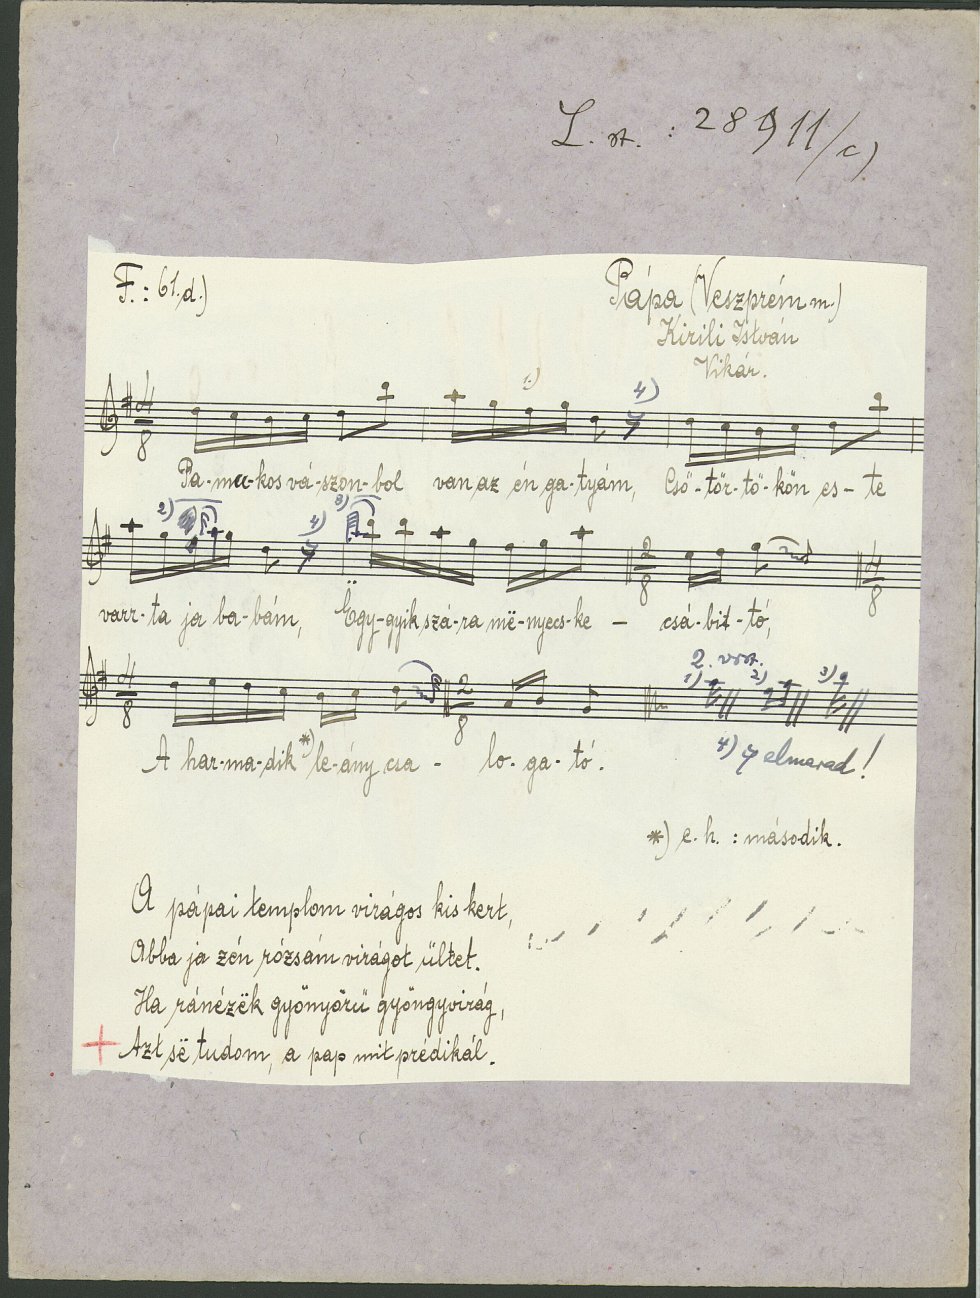 L. st. : 28911/c)
F.: 61.d.)
Pápa (Veszprém m.)
Kirili István
Vikár.
1.) 4)
4/8
Pa-mu-kos vá-szon-bol van az én ga-tyám, Csö-tör-tö-kön es-te
2) 4) 3)
2/8 4/8
varr-ta ja ba-bám, Ëgy-gyik szá-ra më-nyecs-ke - csá-bit-tó,
2. vrsz.
1) 2) 3)
4/8 2/8
A har-ma-dik *) le-ány csa - lo-ga-tó.
4) 7 elmarad!
*) e.h.: második.
A pápai templom virágos kis kert,
Abba ja zén rózsám virágot ültet.
Ha ránézëk gyönyörü gyöngyvirág,
+ Azt së tudom, a pap mit prédikál.